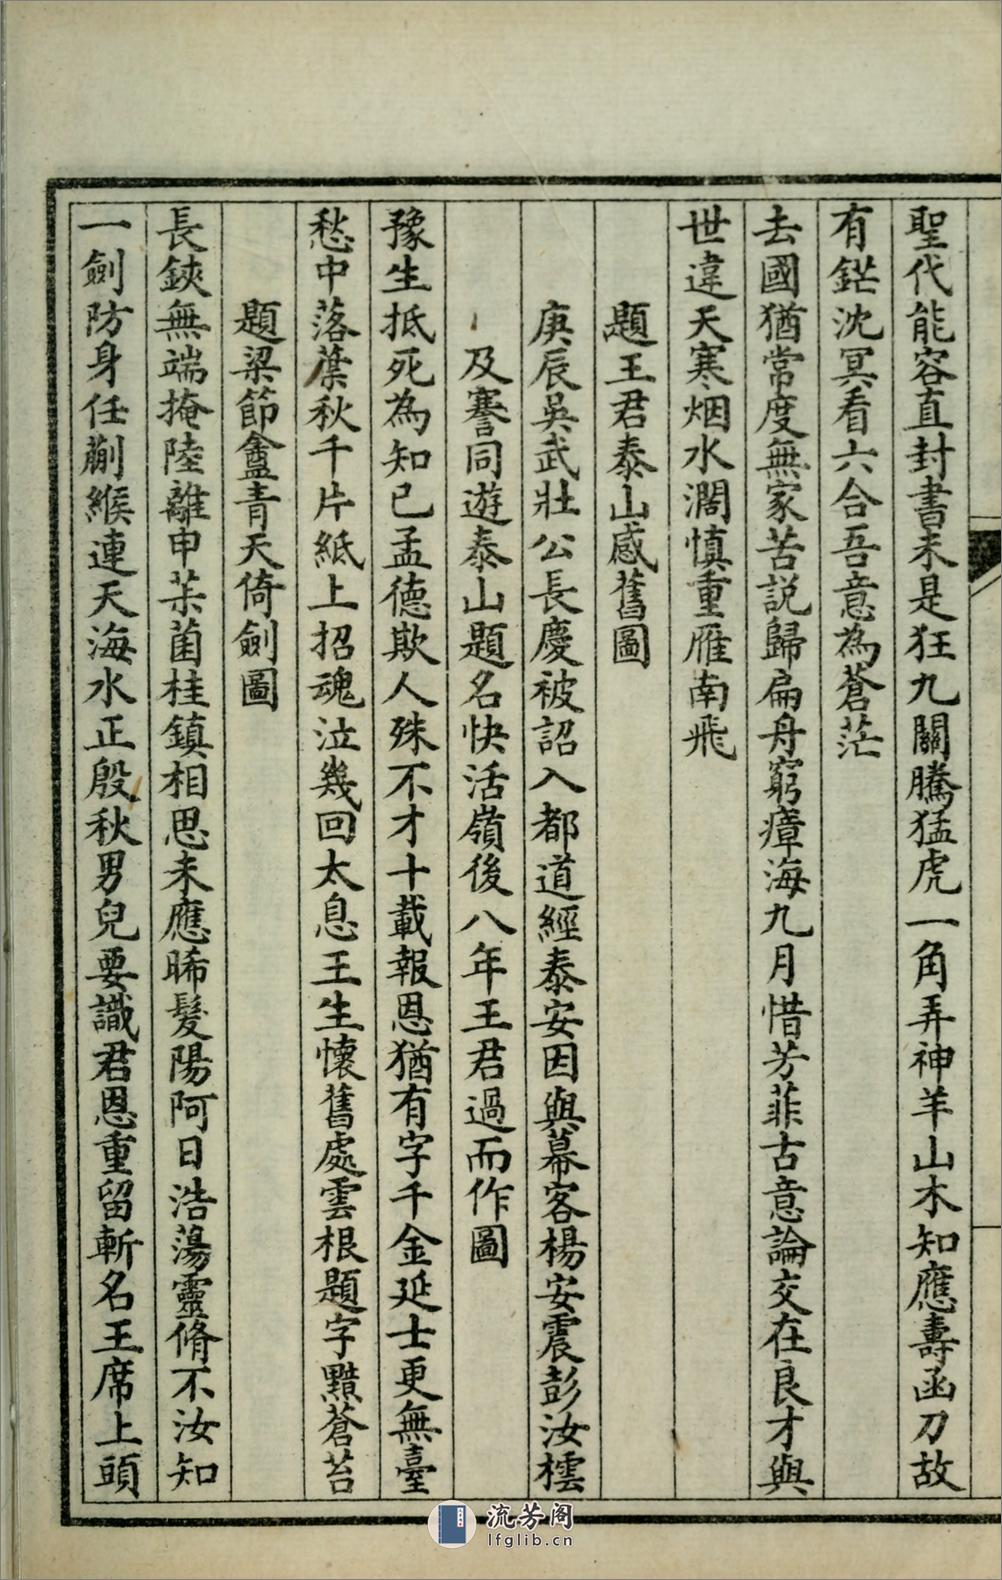 聖代能容直封書未是狂九關騰猛虎一角弄神羊山木知應壽函刀故
有鋩沈冥看六合吾意為蒼茫
去國猶常度無家苦説歸扁舟窮瘴海九月惜芳菲古意論交在良才與
世違天寒烟水濶慎重雁南飛
題王君泰山感舊圖
庚辰吳武壯公長慶被詔入都道經泰安因與幕客楊安震彭汝橒
及謇同遊泰山題名快活嶺後八年王君過而作圖
豫生抵死為知已孟德欺人殊不才十載報恩猶有字千金延士更無臺
愁中落葉秋千片紙上招魂泣幾回太息王生懷舊處雲根題字黦蒼苔
題梁節盦青天倚劍圖
長鋏無端掩陸離申茮菌桂鎮相思未應晞髮陽阿日浩蕩靈脩不汝知
一劍防身任蒯緱連天海水正殷秋男兒要識君恩重留斬名王席上頭
流芳阁
lfglib.cn